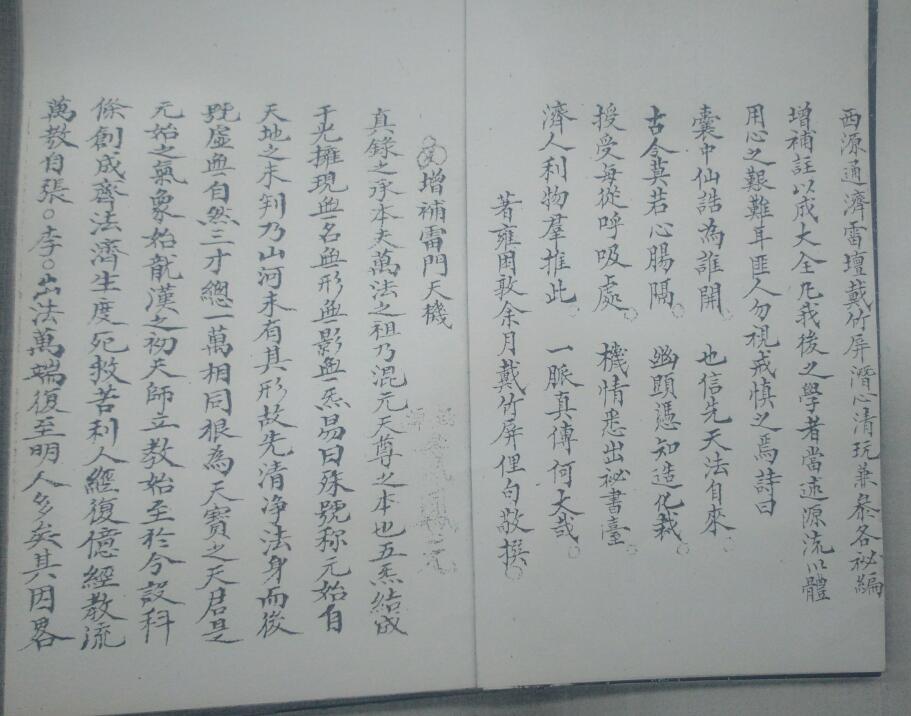 西源通濟雷壇戴竹屏潛心清玩兼叅各祕編
增補註以成大全凡我後之學者當述源流以體
用心之艱難耳匪人勿視戒慎之焉詩曰
囊中仙誥為誰開 也信先天法自來
古今莫若心腸隔 幽顕憑知造化裁
授受每從呼吸處 機情悉出祕書臺
濟人利物羣推此 一脈真傳何大哉
著雍困敦余月戴竹屏俚句敬撰
增補雷門天機
真錄之承本夫萬法之祖乃混元天尊之本也五炁結成
于光擁現無名無形無影無炁易曰殊號称元始自
天地之未判乃山河未有其形故先清净法身而後
虚無自然三才總一萬相同根為天寳之天君是
元始之氣象始龍漢之初天師立教始至於今設科
條創成齊法濟生度死救苦利人經復億經教流
萬教自張〇李〇出法萬端復至明人多矣其因畧